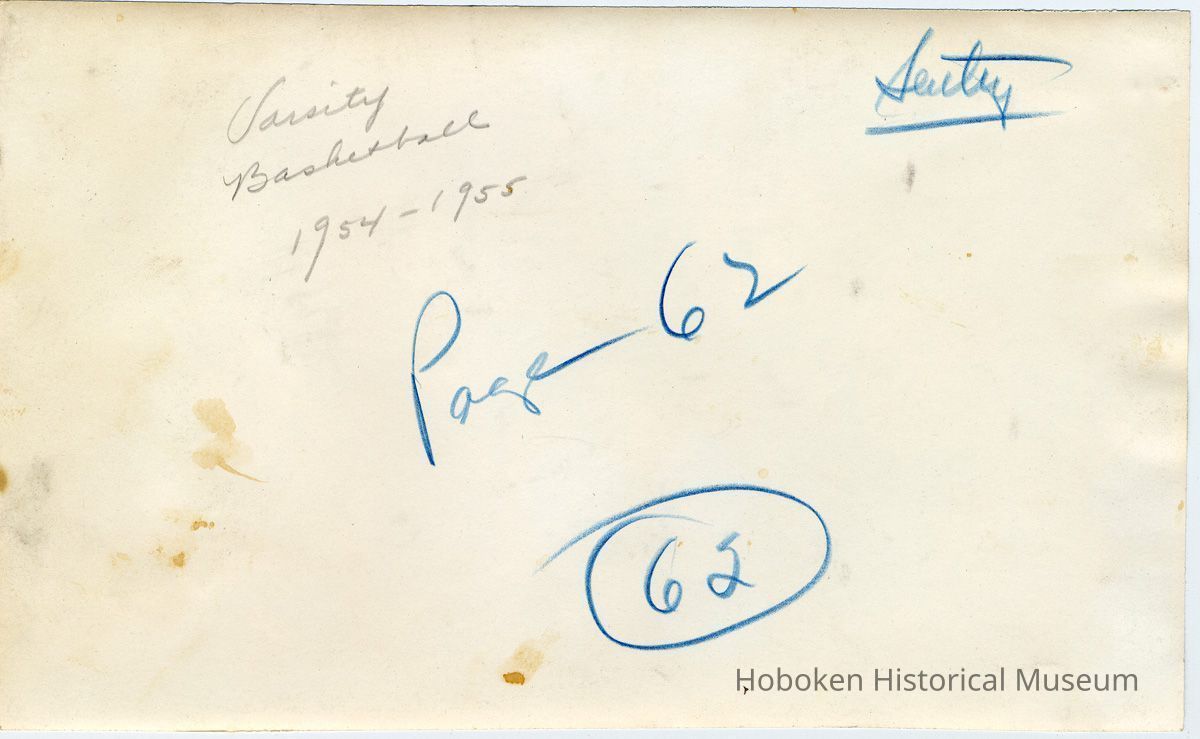 Varsity
Basketball
1954-1955
Sentry
Page 62
62
Hoboken Historical Museum